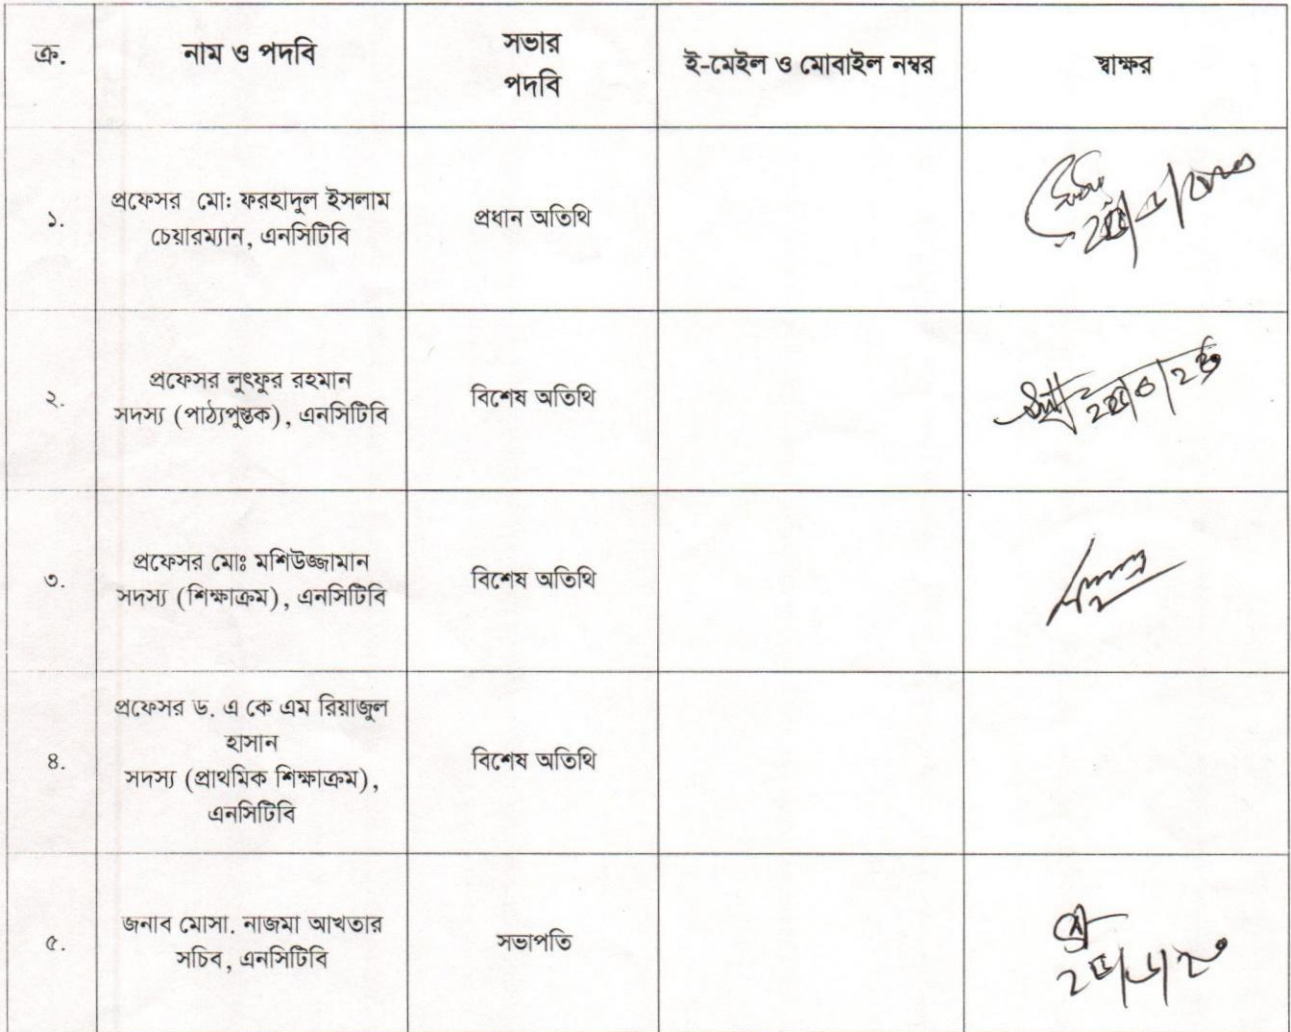 ক্র.
নাম ও পদবি
সভার
পদবি
ই-মেইল ও মোবাইল নম্বর
স্বাক্ষর
১.
প্রফেসর মো: ফরহাদুল ইসলাম
চেয়ারম্যান, এনসিটিবি
প্রধান অতিথি
২.
প্রফেসর লুৎফুর রহমান
সদস্য (পাঠ্যপুস্তক), এনসিটিবি
বিশেষ অতিথি
৩.
প্রফেসর মোঃ মশিউজ্জামান
সদস্য (শিক্ষাক্রম), এনসিটিবি
বিশেষ অতিথি
৪.
প্রফেসর ড. এ কে এম রিয়াজুল
হাসান
সদস্য (প্রাথমিক শিক্ষাক্রম),
এনসিটিবি
বিশেষ অতিথি
৫.
জনাব মোসা. নাজমা আখতার
সচিব, এনসিটিবি
সভাপতি